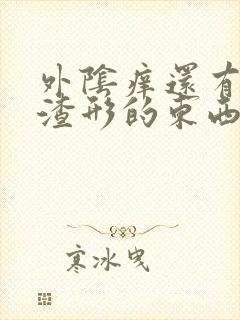 外陰痒還有
渣形的東西
寒冰曳